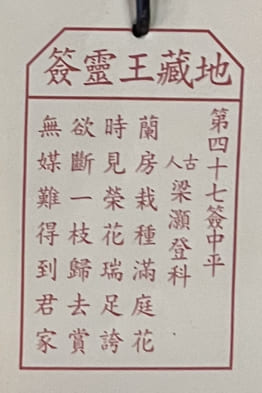 地藏王靈簽
第四十七簽中平
古人 梁灝登科
蘭房栽種滿庭花
時見榮花瑞足誇
欲斷一枝歸去賞
無媒難得到君家